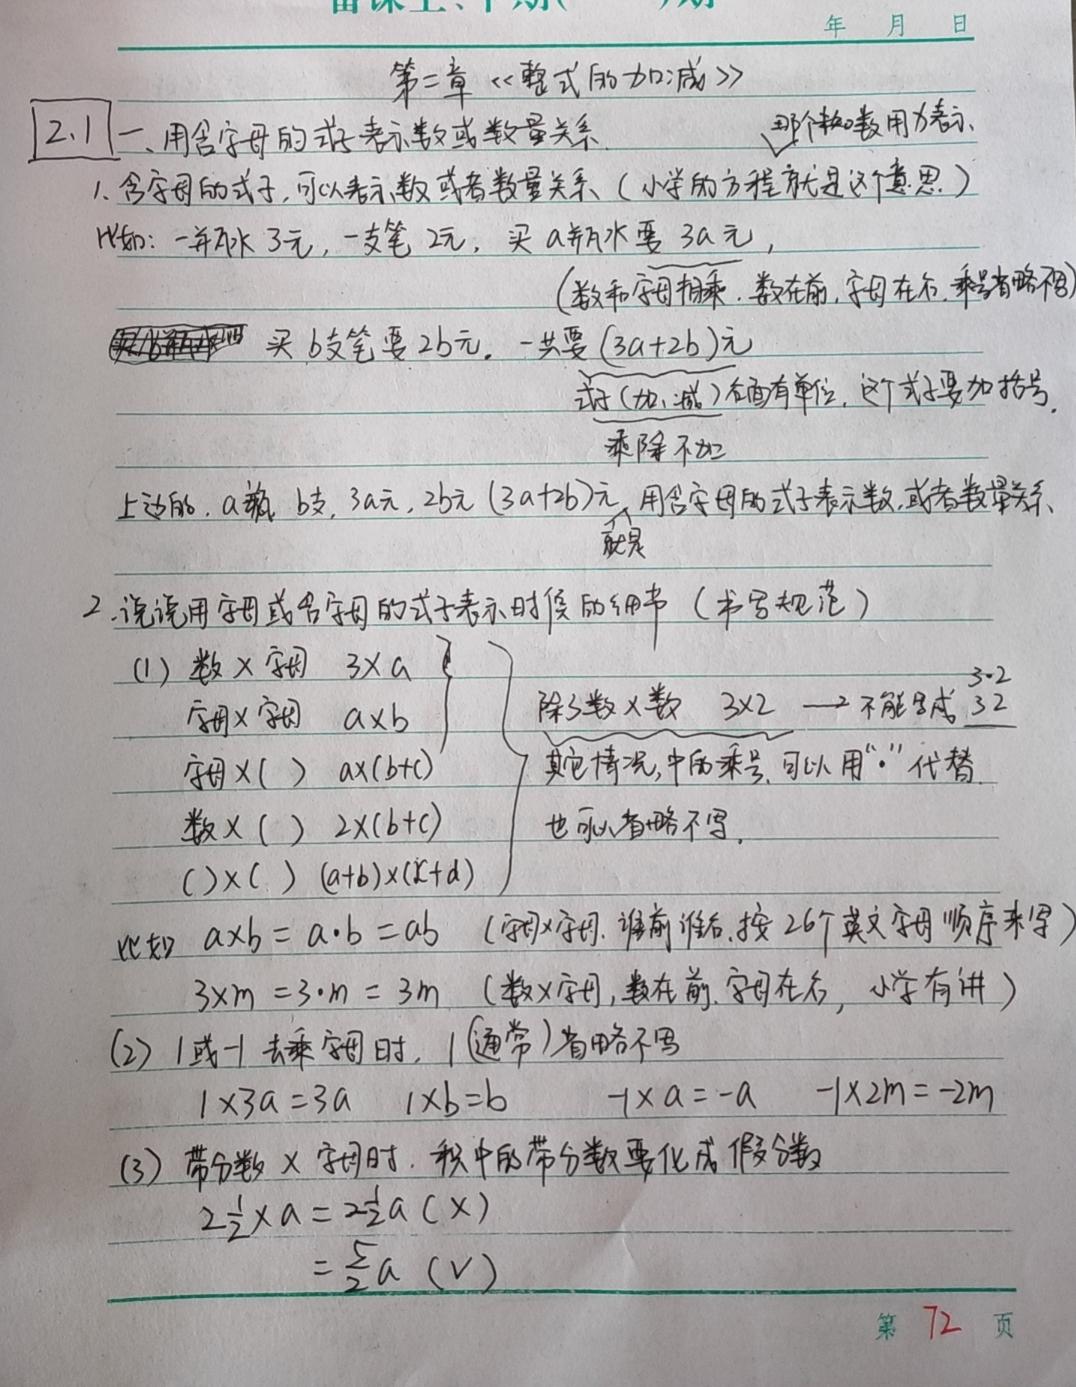 年 月 日
第二章《整式的加减》
2.1 一、用含字母的式子表示数或数量关系. 那个未知数用x表示
1. 含字母的式子,可以表示数或者数量关系(小学的方程就是这个意思)
比如: 一瓶水3元,一支笔2元, 买a瓶水要3a元,
(数和字母相乘.数在前,字母在后,乘号省略不写)
买b支笔要2b元. 一共要(3a+2b)元
式子(加、减)后面有单位,这个式子要加括号.
乘除不加
上边的. a瓶 b支, 3a元, 2b元 (3a+2b)元 就是 用含字母的式子表示数,或者数量关系
2.说说用字母或含字母的式子表示时候的细节(书写规范)
(1) 数×字母 3×a
字母×字母 a×b
3·2
除了数×数 3×2 → 不能写成 32
字母×( ) a×(b+c) 其它情况,中的乘号,可以用“·”代替.
数×( ) 2×(b+c) 也可以省略不写.
( )×( ) (a+b)×(c+d)
比如 a×b=a·b=ab (字母×字母.谁前谁后.按26个英文字母顺序来写)
3×m=3·m=3m (数×字母,数在前.字母在后,小学有讲)
(2) 1或-1去乘字母时, 1(通常)省略不写
1×3a=3a 1×b=b -1×a=-a -1×2m=-2m
(3) 带分数×字母时.积中的带分数要化成假分数
2½×a=2½a (×)
=5/2a (√)
第 72 页